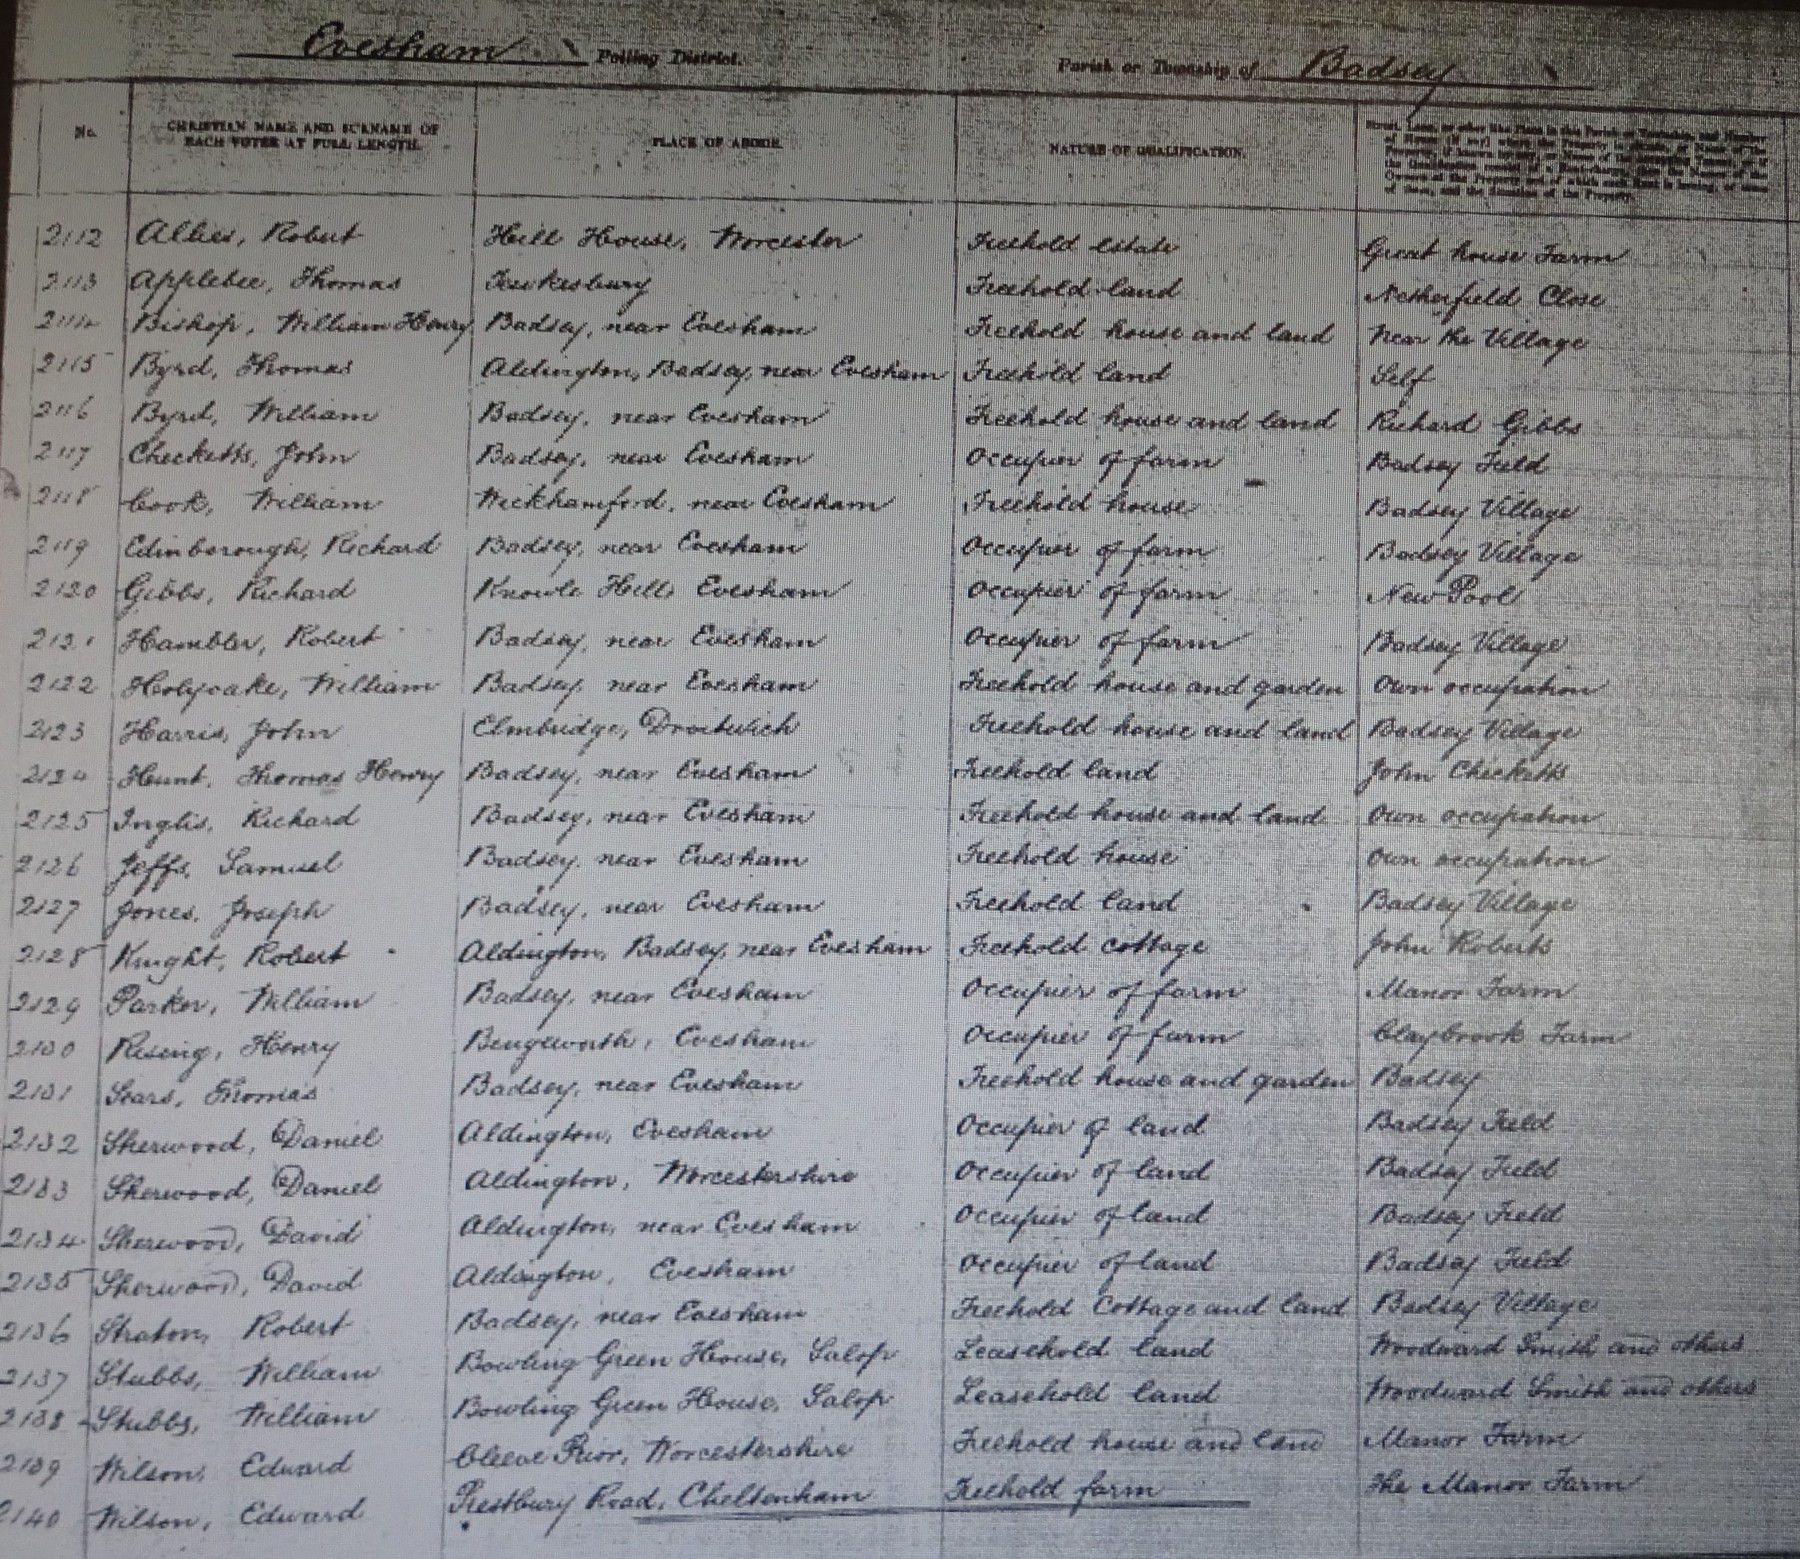 Evesham Polling District. Parish or Township of Badsey
No. CHRISTIAN NAME AND SURNAME OF PLACE OF ABODE. NATURE OF QUALIFICATION. Street, Lane, or other like Place in this Parish or Township, and Number
EACH VOTER AT FULL LENGTH. of House (if any) where the Property is situate, or Name of the
Property
the Qualification
Owners of the Property
of them, and the Situation of the Property.
2112 Allies, Robert Hill House, Worcester Freehold estate Great house Farm
2113 Applebee, Thomas Tewkesbury Freehold land Netherfield Close
2114 Bishop, William Henry Badsey, near Evesham Freehold house and land Near the Village
2115 Byrd, Thomas Aldington, Badsey, near Evesham Freehold land Self
2116 Byrd, William Badsey, near Evesham Freehold house and land Richard Gibbs
2117 Checketts, John Badsey, near Evesham Occupier of farm Badsey Field
2118 Cook, William Wickhamford, near Evesham Freehold house Badsey Village
2119 Edinborough, Richard Badsey, near Evesham Occupier of farm Badsey Village
2120 Gibbs, Richard Knowle Hill, Evesham Occupier of farm New Pool
2121 Hambler, Robert Badsey, near Evesham Occupier of farm Badsey Village
2122 Holyoake, William Badsey, near Evesham Freehold house and garden Own occupation
2123 Harris, John Elmbridge, Droitwich Freehold house and land Badsey Village
2124 Hunt, Thomas Henry Badsey, near Evesham Freehold land John Checketts
2125 Inglis, Richard Badsey, near Evesham Freehold house and land Own occupation
2126 Jeffs, Samuel Badsey, near Evesham Freehold house Own occupation
2127 Jones, Joseph Badsey, near Evesham Freehold land Badsey Village
2128 Knight, Robert Aldington, Badsey, near Evesham Freehold cottage John Roberts
2129 Parker, William Badsey, near Evesham Occupier of farm Manor Farm
2130 Rising, Henry Bengeworth, Evesham Occupier of farm Claybrook Farm
2131 Sears, Thomas Badsey, near Evesham Freehold house and garden Badsey
2132 Sherwood, Daniel Aldington, Evesham Occupier of land Badsey Field
2133 Sherwood, Daniel Aldington, Worcestershire Occupier of land Badsey Field
2134 Sherwood, David Aldington, near Evesham Occupier of land Badsey Field
2135 Sherwood, David Aldington, Evesham Occupier of land Badsey Field
2136 Straton, Robert Badsey, near Evesham Freehold Cottage and land Badsey Village
2137 Stubbs, William Bowling Green House, Salop Leasehold land Woodward Smith and others
2138 Stubbs, William Bowling Green House, Salop Leasehold land Woodward Smith and others
2139 Wilson, Edward Cleeve Prior, Worcestershire Freehold house and land Manor Farm
2140 Wilson, Edward Prestbury Road, Cheltenham Freehold farm The Manor Farm